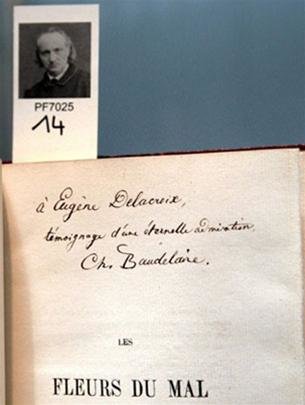 PF7025
14
à Eugène Delacroix,
témoignage d'une éternelle admiration,
Ch. Baudelaire.
LES
FLEURS DU MAL